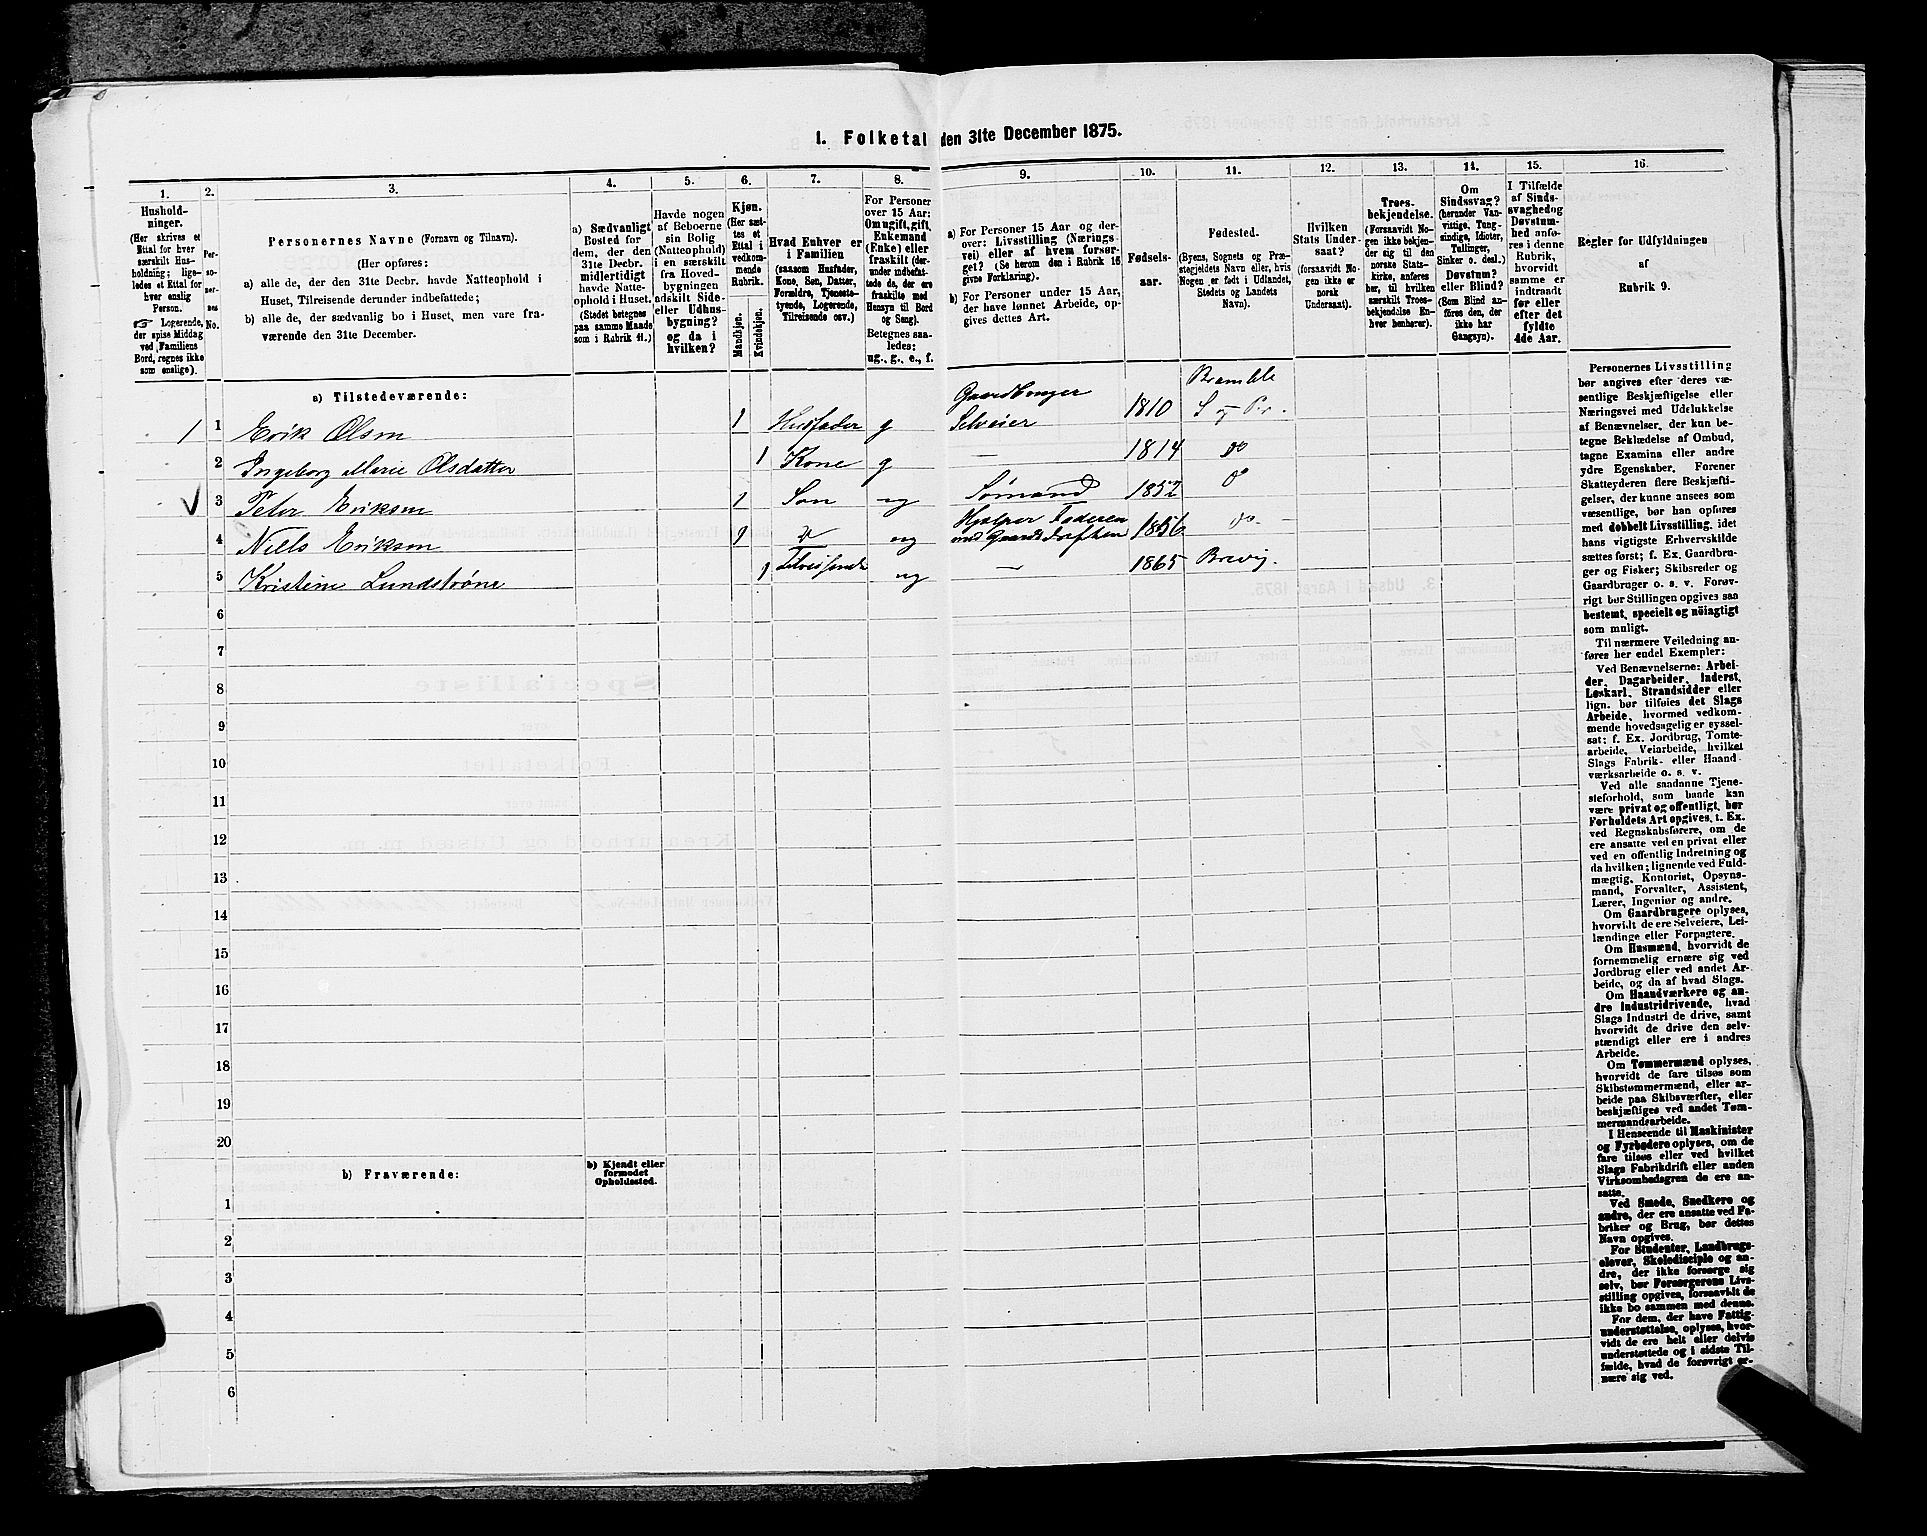 1. Folketal den 31te December 1875.
1. 2. 3. 4. 5. 6. 7. 8. 9. 10. 11. 12. 13. 14. 15. 16.
Hushold-
ninger.
(Her skrives et
Ettal for hver
særskilt Hus-
holdning; lige-
ledes et Ettal for
hver enslig
Person.
☞ Logerende,
der spise Middag
ved Familiens
Bord, regnes ikke
som enslige).
Per-
so-
ner-
nes
No.
Personernes Navne (Fornavn og Tilnavn).
(Her opføres:
a) alle de, der den 31te Decbr. havde Natteophold i
Huset, Tilreisende derunder indbefattede;
b) alle de, der sædvanlig bo i Huset, men vare fra-
værende den 31te December.
a) Sædvanligt
Bosted for
dem, der den
31te Decbr.
midlertidigt
havde Natte-
ophold i Huset.
(Stedet betegnes
paa samme Maade
som i Rubrik 11.)
Havde nogen
af Beboerne
sin Bolig
(Natteophold)
i en særskilt
fra Hoved-
bygningen
adskilt Side-
eller Udhus-
bygning?
og da i
hvilken?
Kjøn.
(Her sæt-
tes et
Ettal i
vedkom-
mende
Rubrik.
Mandkjøn.
Kvindekjøn.
Hvad Enhver er
i Familien
(saasom Husfader,
Kone, Søn, Datter,
Forældre, Tjeneste-
tyende, Logerende,
Tilreisende osv.)
For Personer
over 15 Aar:
Om ugift, gift,
Enkemand
(Enke) eller
fraskilt (der-
under indbefat-
tede de, der ere
fraskilte med
Hensyn til Bord
og Seng).
Betegnes saa-
ledes:
ug., g., e., f.
a) For Personer 15 Aar og der-
over: Livsstilling (Nærings-
vei) eller af hvem forsør-
get? (Se herom den i Rubrik 16
givne Forklaring).
b) For Personer under 15 Aar,
der have lønnet Arbeide, op-
gives dettes Art.
Fødsels-
aar.
Fødested.
(Byens, Sognets og Præ-
stegjeldets Navn eller, hvis
Nogen er født i Udlandet,
Stedets og Landets
Navn).
Hvilken
Stats Under-
saat?
(forsaavidt No-
gen ikke er
norsk
Undersaat).
Troes-
bekjendelse.
(Forsaavidt No-
gen ikke bekjen-
der sig til den
norske Stats-
kirke, anføres
her, til hvilken
særskilt Troes-
bekjendelse En-
hver henhører).
Om
Sindssvag?
(herunder Van-
vittige, Tung-
sindige, Idioter,
Tullinger,
Sinker o. desl.)
Døvstum?
eller Blind?
(Som Blind an-
føres den, der
ikke har
Gangsyn).
I Tilfælde
af Sinds-
svaghed og
Døvstum-
hed anfø-
res i denne
Rubrik,
hvorvidt
samme er
indtraadt
før eller
efter det
fyldte
4de Aar.
Regler for Udfyldningen
af
Rubrik 9.
a) Tilstedeværende:
1 1 Erik Olsen 1 Husfader g Gaardbruger
Selveier 1810 Bramble
S og Pr.
2 Ingeborg Marie Olsdatter 1 Kone g — 1814 do
3 Peter Eriksen 1 Søn ug Sømand 1852 do
4 Niels Eriksen 1 do ug Hjælper Faderen
med Gaardsdriften 1856 do
5 Kristine Lundstrøne 1 Tilreisende ug — 1865 Brevig.
6
7
8
9
10
11
12
13
14
15
16
17
18
19
20
b) Fraværende:
b) Kjendt eller
formodet
Opholdssted.
1
2
3
4
5
6
Personernes Livsstilling
bør angives efter deres væ-
sentlige Beskjæftigelse eller
Næringsvei med Udelukkelse
af Benævnelser, der kun be-
tegne Beklædelse af Ombud,
tagne Examina eller andre
ydre Egenskaber. Forener
Skatteyderen flere Beskjæfti-
gelser, der kunne ansees som
væsentlige, bør han opføres
med dobbelt Livsstilling, idet
hans vigtigste Erhvervskilde
sættes først; f. Ex. Gaardbru-
ger og Fisker; Skibsreder og
Gaardbruger o. s. v. Forøv-
rigt bør Stillingen opgives saa
bestemt, specielt og nöiagtigt
som muligt.
Til nærmere Veiledning an-
føres her endel Exempler:
Ved Benævnelserne: Arbei-
der, Dagarbeider, Inderst,
Løskarl, Strandsidder eller
lign. bør tilføies det Slags
Arbeide, hvormed vedkom-
mende hovedsagelig er syssel-
sat; f. Ex. Jordbrug, Tomte-
arbeide, Veiarbeide, hvilket
Slags Fabrik- eller Haand-
værksarbeide o. s. v.
Ved alle saadanne Tjene-
steforhold, som baade kan
være privat og offentligt, bør
Forholdets Art opgives, t. Ex.
ved Regnskabsførere, om de
ere ansatte ved en privat eller
ved en offentlig Indretning og
da hvilken; lignende ved Fuld-
mægtig, Kontorist, Opsyns-
mand, Forvalter, Assistent,
Lærer, Ingeniør og andre.
Om Gaardbrugere oplyses,
hvorvidt de ere Selveiere, Lei-
lændinge eller Forpagtere.
Om Husmænd, hvorvidt de
fornemmelig ernære sig ved
Jordbrug eller ved andet Ar-
beide, og da af hvad Slags.
Om Haandværkere og an-
dre Industridrivende, hvad
Slags Industri de drive, samt
hvorvidt de drive den selv-
stændigt eller ere i andres
Arbeide.
Om Tømmermænd oplyses,
hvorvidt de fare tilsøs som
Skibstømmermænd, eller ar-
beide paa Skibsværfter, eller
beskjæftiges ved andet Tøm-
mermandsarbeide.
I Henseende til Maskinister
og Fyrbødere oplyses, om de
fare tilsøs eller ved hvilket
Slags Fabrikdrift eller anden
Virksomhedsgren de ere an-
satte.
Ved Smede, Snedkere og
andre, der ere ansatte ved Fa-
briker og Brug, bør dettes
Navn opgives.
For Studenter, Landbrugs-
elever, Skoledisciple og an-
dre, der ikke forsørge sig
selv, bør Forsørgerens Livs-
stilling opgives, forsaavidt de
ikke bo sammen med denne.
For dem, der have Fattig-
understøttelse, oplyses, hvor-
vidt de ere helt eller delvis
understøttede og i sidste Til-
fælde, hvad de forøvrigt er-
nære sig ved.